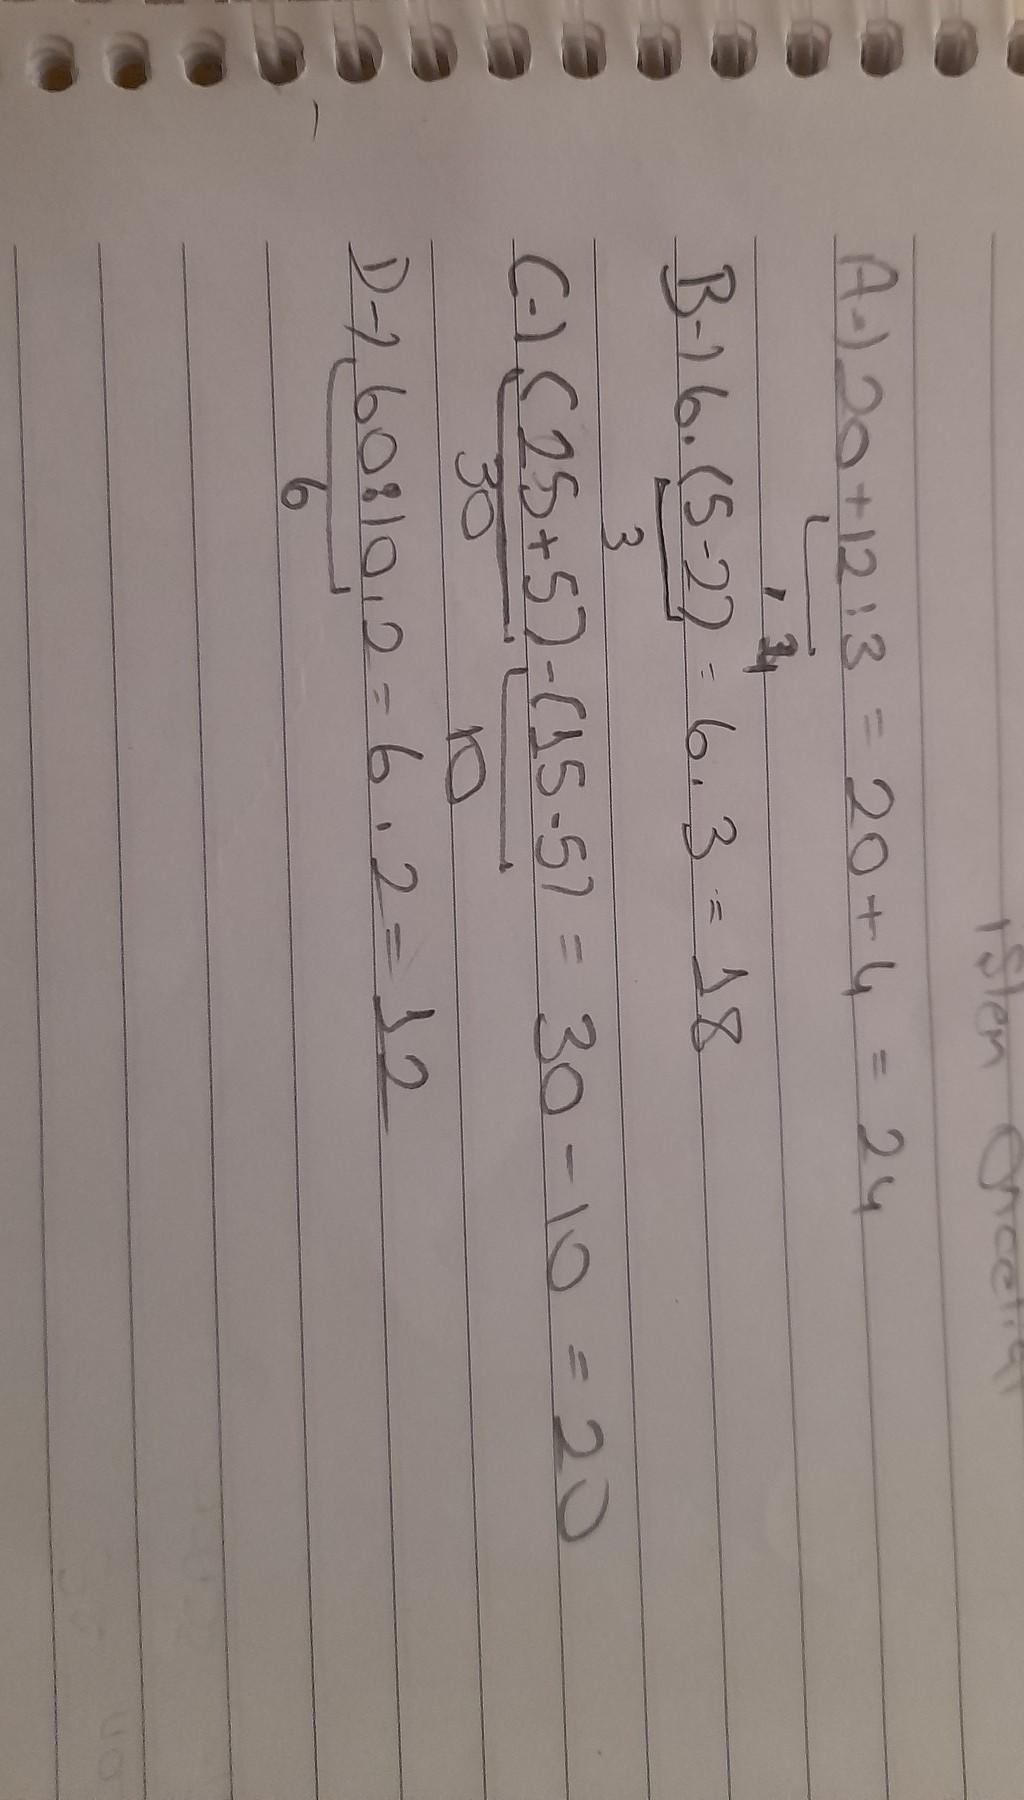 işlem önceliği
A-) 20+12:3 = 20+4 = 24
4
B-) 6.(5-2) = 6.3 = 18
3
C-) (25+5)-(15-5) = 30-10 = 20
30 10
D-) 60:10.2 = 6.2 = 12
6